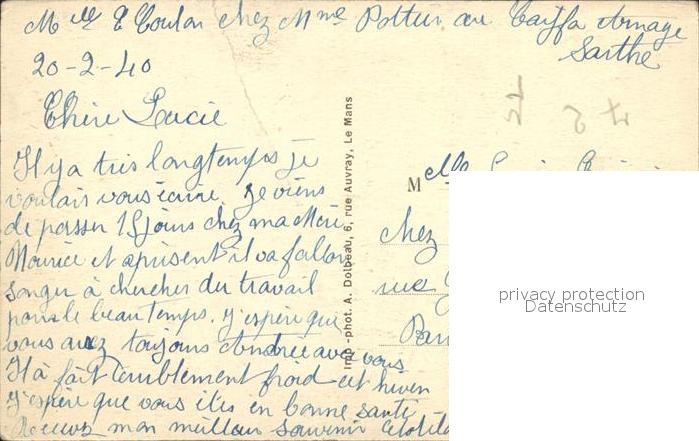 Melle E Coulon chez Mme Pottier au Caiffa Arnage
Sarthe
20-2-40
Chère Lucie
Il y a très longtemps je
voulais vous écrire. Je viens
de passer 15 jours chez ma Mère
Mourice et aprisent il va falloir
songer à chercher du travail
pour le beau temps. J'espère que
vous avez toujours Andrée avec vous
Il à fait temblement froid cet hiver
j'espère que vous êtes en bonne santé
Recevez mon meilleur souvenir Clotilde
Imp.-phot. A. Dolbeau, 6, rue Auvray, Le Mans
Melle
chez
rue
privacy protection
Datenschutz